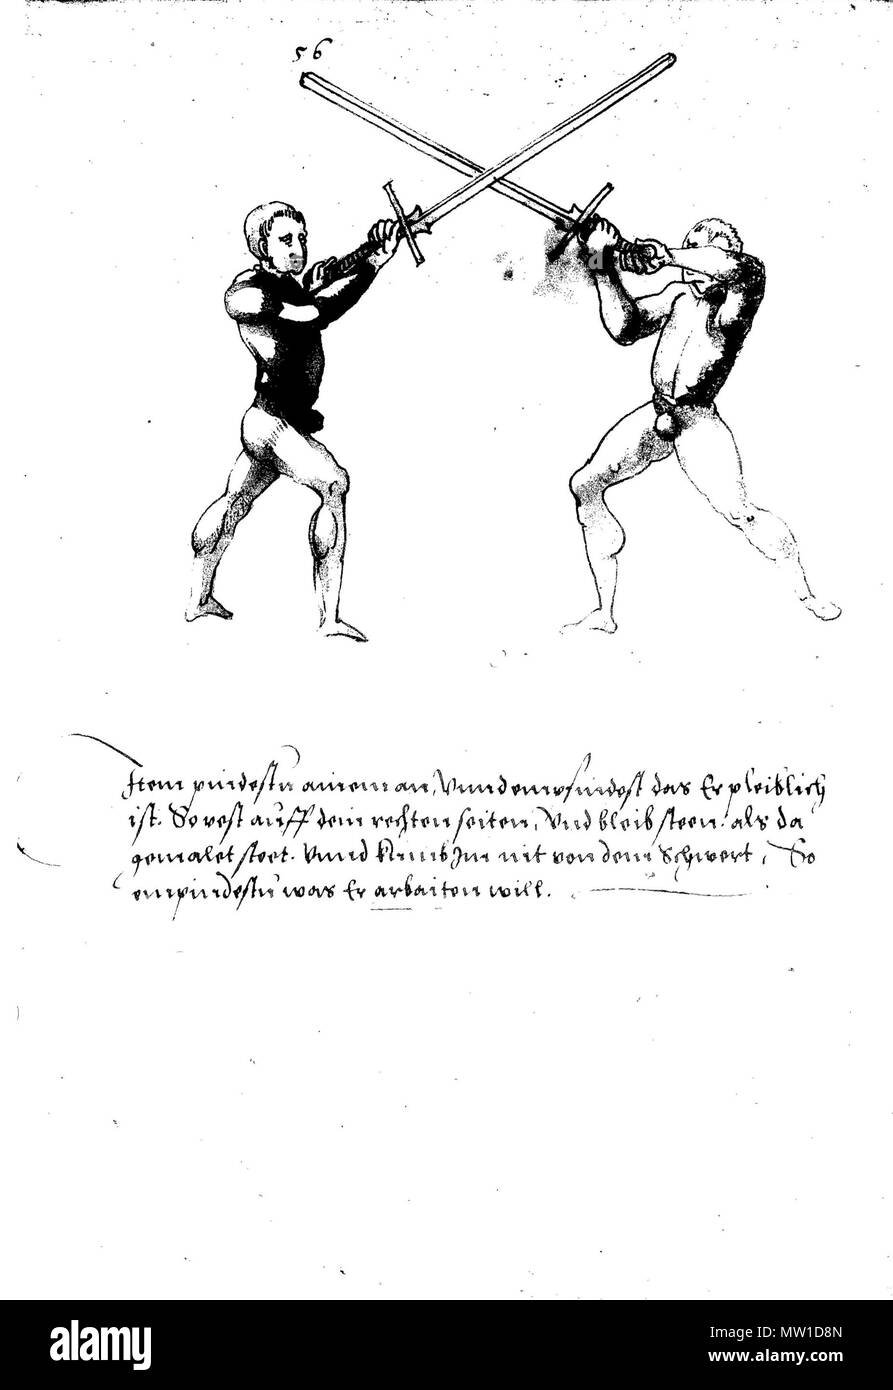 56
Item pindestu ainem an, Vnnd empfindest das Er pleiblich
ist. So vest auff dein rechten seiten, Vnd bleib steen. als da
gemalet stet. Vnnd kumb Im nit von dem Schwert, So
empindestu was Er arbaiten will.
a
a
a
alamy
Image ID: MW1D8N
www.alamy.com